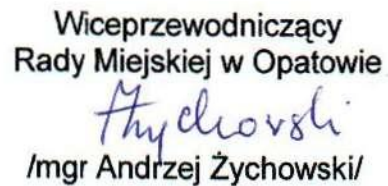 Wiceprzewodniczący
Rady Miejskiej w Opatowie
Żychowski
/mgr Andrzej Żychowski/